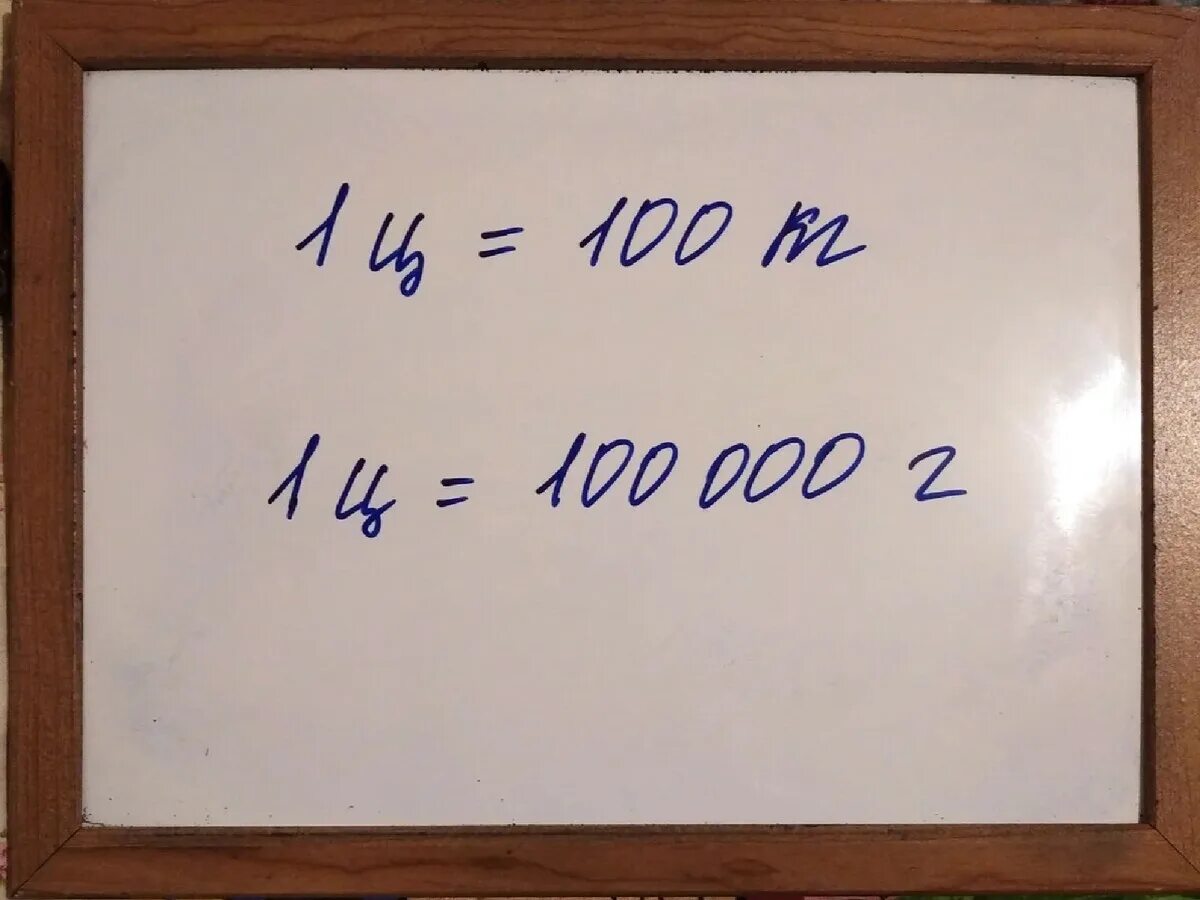 1 ц = 100 кг
1 ц = 100 000 г